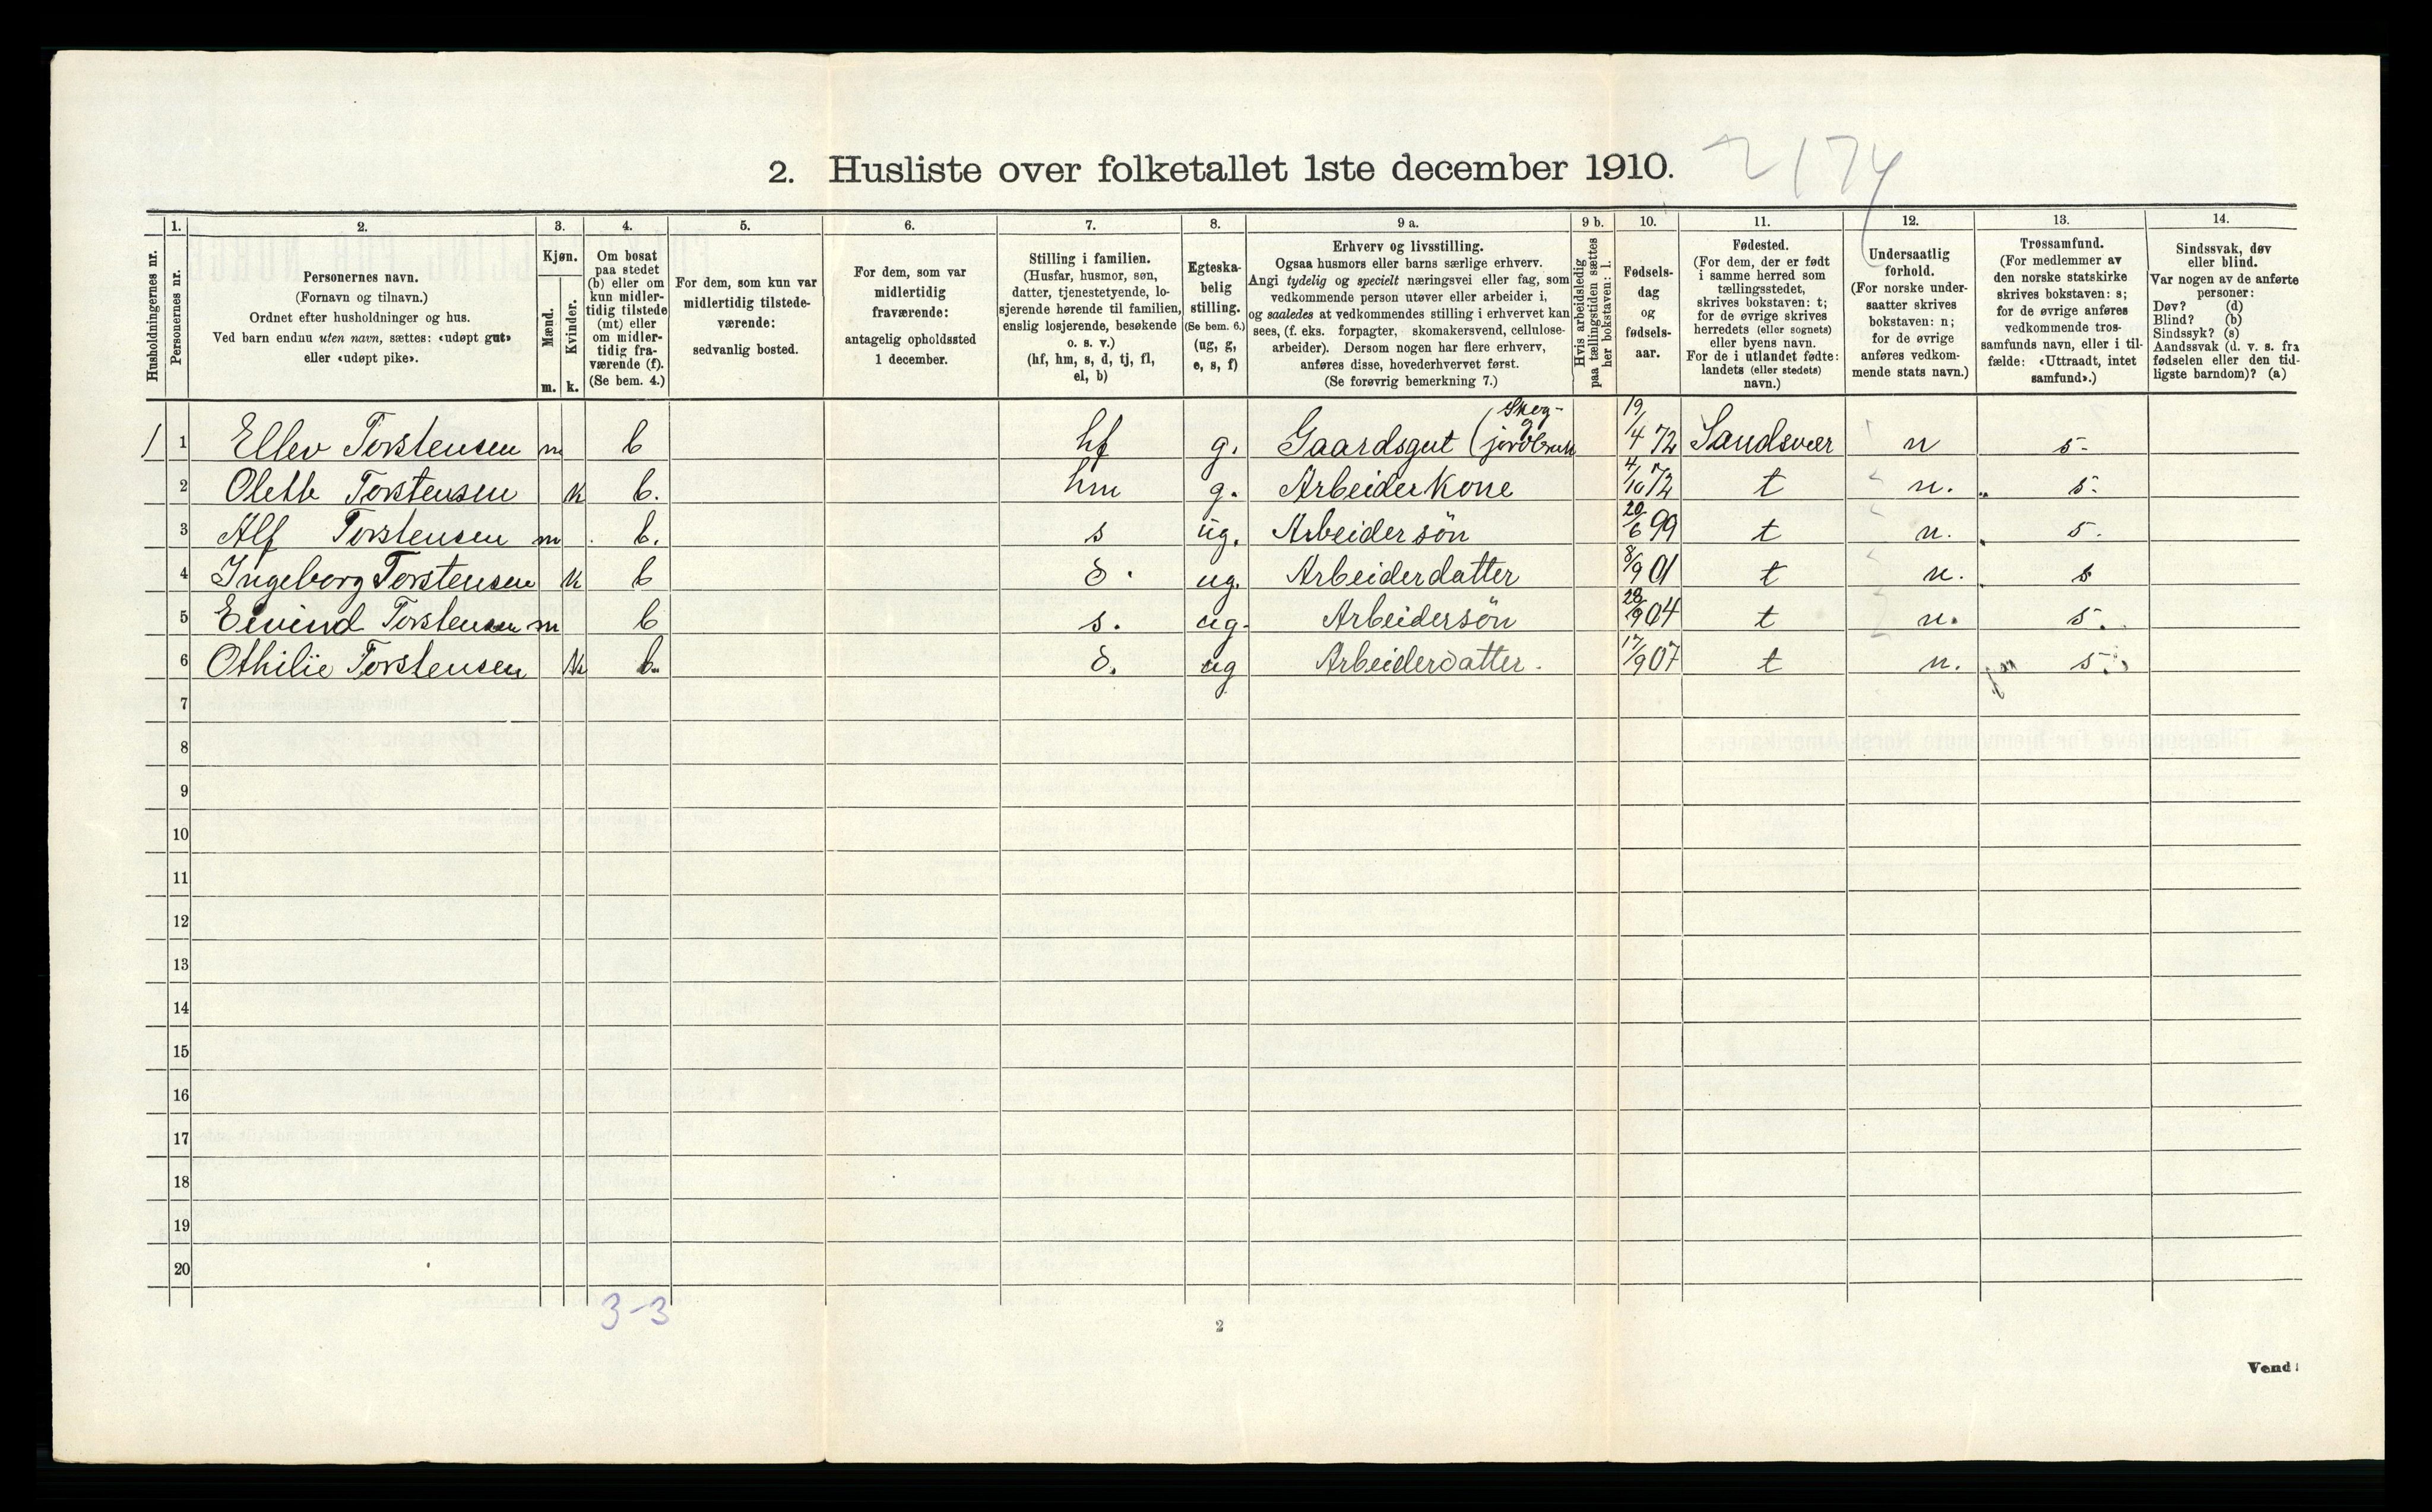 2. Husliste over folketallet 1ste december 1910.
2174
1. 2. 3. 4. 5. 6. 7. 8. 9 a. 9 b. 10. 11. 12. 13. 14.
Husholdningernes nr.
Personernes nr.
Personernes navn.
(Fornavn og tilnavn.)
Ordnet efter husholdninger og hus.
Ved barn endnu uten navn, sættes: «udøpt gut»
eller «udøpt pike».
Kjøn.
Mænd.
m.
Kvinder.
k.
Om bosat
paa stedet
(b) eller om
kun midler-
tidig tilstede
(mt) eller
om midler-
tidig fra-
værende (f).
(Se bem. 4.)
For dem, som kun var
midlertidig tilstede-
værende:
sedvanlig bosted.
For dem, som var
midlertidig
fraværende:
antagelig opholdssted
1 december.
Stilling i familien.
(Husfar, husmor, søn,
datter, tjenestetyende, lo-
sjerende hørende til familien,
enslig losjerende, besøkende
o. s. v.)
(hf, hm, s, d, tj, fl,
el, b)
Egteska-
belig
stilling.
(Se bem. 6.)
(ug, g,
e, s, f)
Erhverv og livsstilling.
Ogsaa husmors eller barns særlige erhverv.
Angi tydelig og specielt næringsvei eller fag, som
vedkommende person utøver eller arbeider i,
og saaledes at vedkommendes stilling i erhvervet kan
sees, (f. eks. forpagter, skomakersvend, cellulose-
arbeider). Dersom nogen har flere erhverv,
anføres disse, hovederhvervet først.
(Se forøvrig bemerkning 7.)
Hvis arbeidsledig
paa tællingstiden sættes
her bokstaven: l.
Fødsels-
dag
og
fødsels-
aar.
Fødested.
(For dem, der er født
i samme herred som
tællingsstedet,
skrives bokstaven: t;
for de øvrige skrives
herredets (eller sognets)
eller byens navn.
For de i utlandet fødte:
landets (eller stedets)
navn.)
Undersaatlig
forhold.
(For norske under-
saatter skrives
bokstaven: n;
for de øvrige
anføres vedkom-
mende stats navn.)
Trossamfund.
(For medlemmer av
den norske statskirke
skrives bokstaven: s;
for de øvrige anføres
vedkommende tros-
samfunds navn, eller i til-
fælde: «Uttraadt, intet
samfund».)
Sindssvak, døv
eller blind.
Var nogen av de anførte
personer:
Døv? (d)
Blind? (b)
Sindssyk? (s)
Aandssvak (d. v. s. fra
fødselen eller den tid-
ligste barndom)? (a)
1 1 Ellev Torstensen m b hf g. Gaardsgut (Skog- g jordbruk 19/4 72 Sandsvær n s.
2 Olette Torstensen k b. hm g. Arbeiderkone 4/10 72 t n. s.
3 Alf Torstensen m b. s ug. Arbeidersön 20/6 99 t n. s.
4 Ingeborg Torstensen k b d. ug. Arbeiderdatter 8/9 01 t n. s
5 Eivind Torstensen m b s. ug. Arbeidersön 28/9 04 t n. s.
6 Othilie Torstensen k b. d. ug Arbeiderdatter. 17/9 07 t n. s.
7
8
9
10
11
12
13
14
15
16
17
18
19
20
3-3
2
Vend!